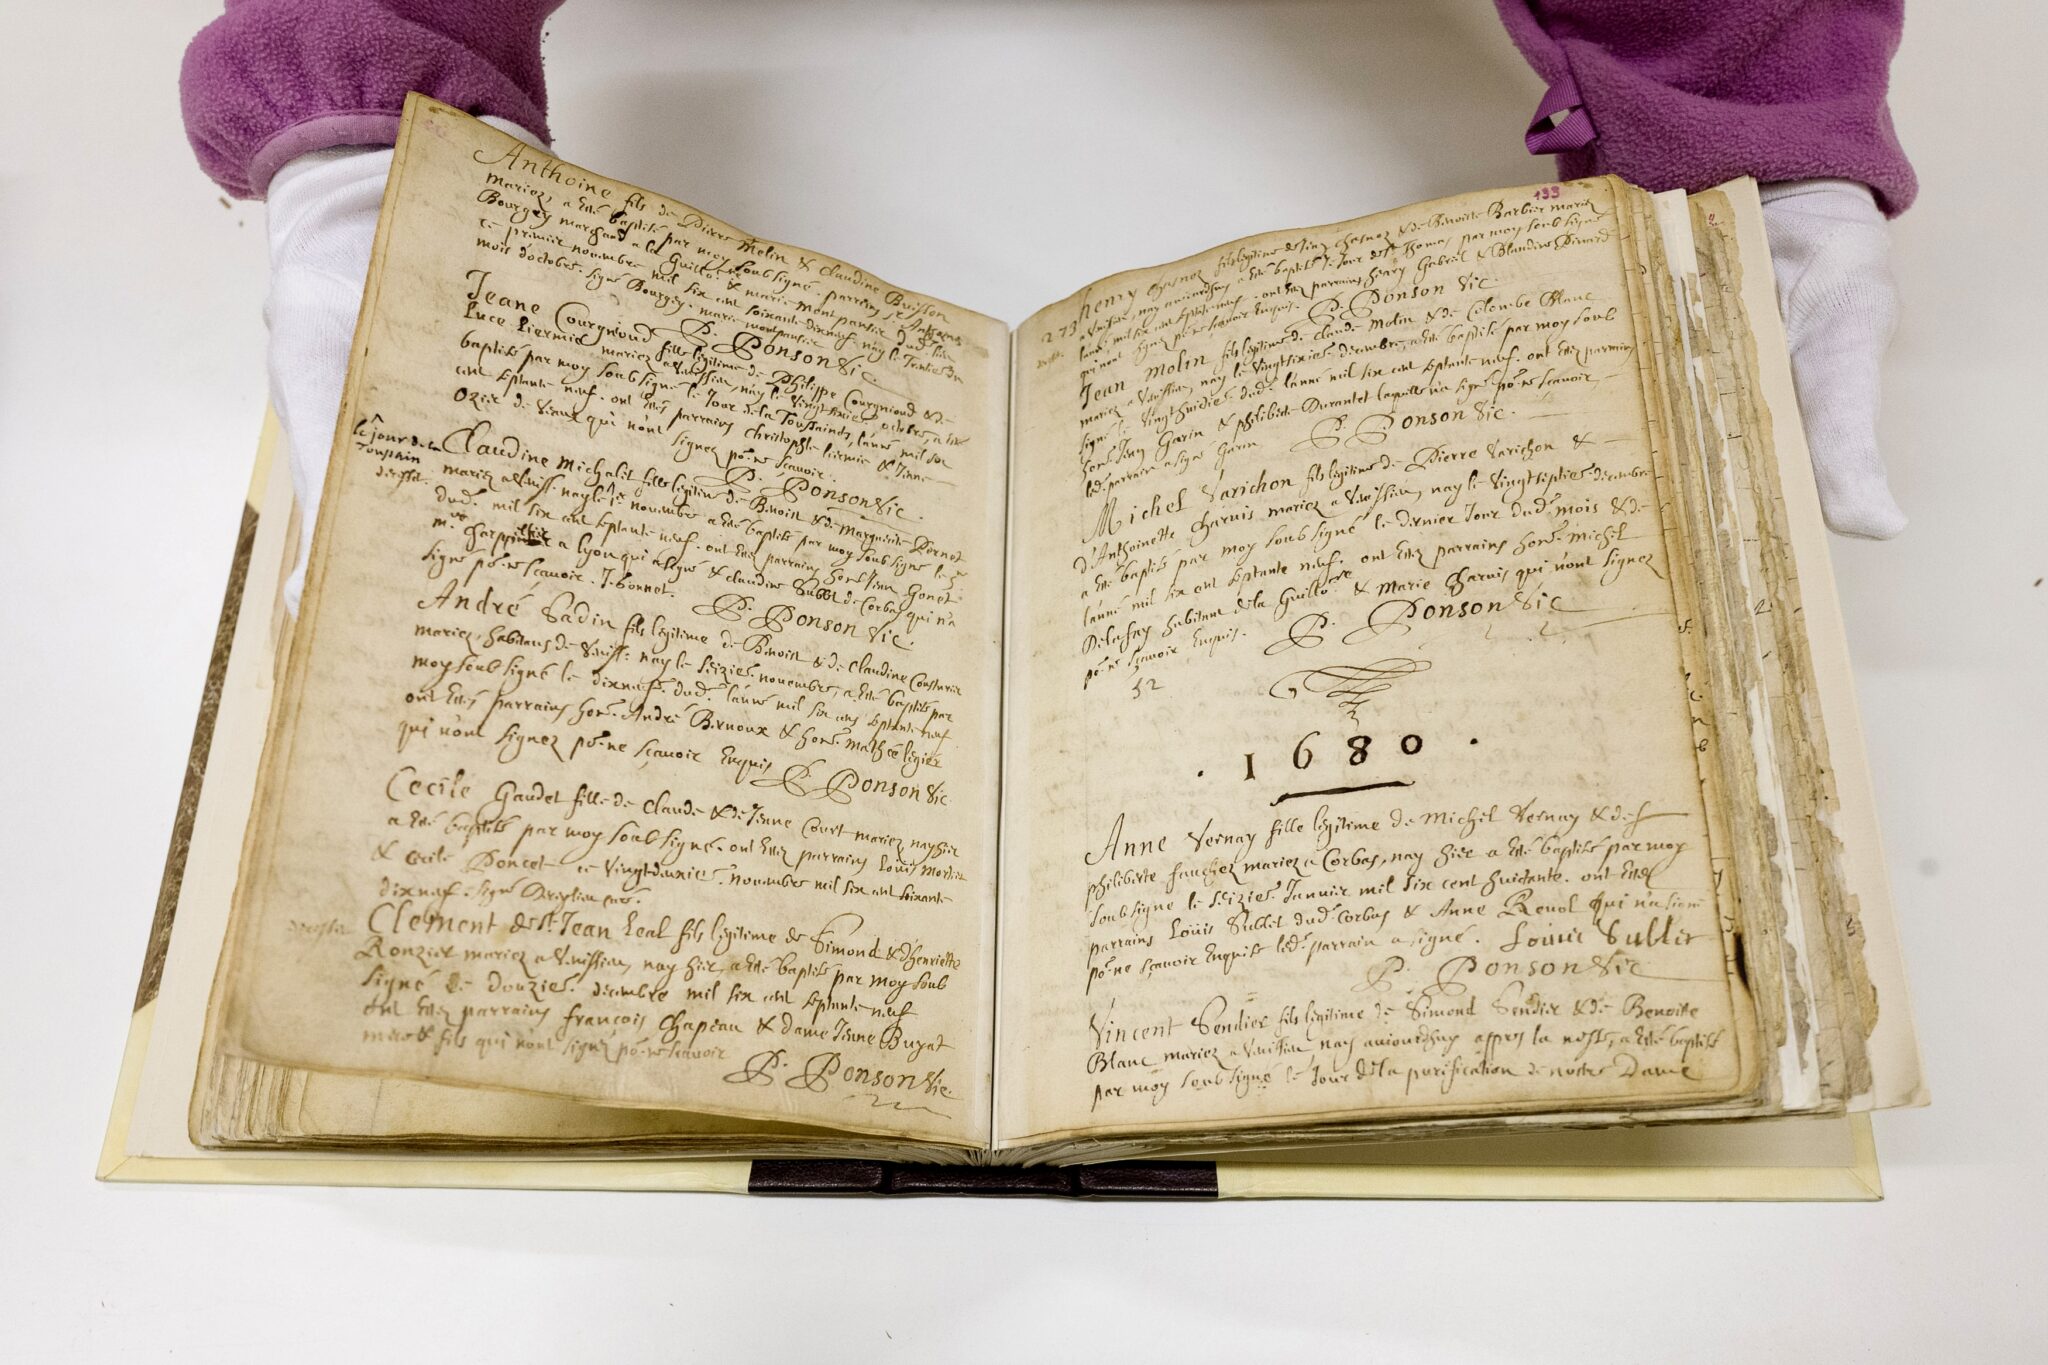 Anthoine fils de Pierre Melin & Claudine Buisson
mariez, a esté baptisé par moy soubsigné. parrain sr Anthoine
Bourgey marchand a la Guillotiere & marie montpansier dud. lieu
ce premier novembre mil six cent soixante dixneuf nay le Trentie du
mois d'octobre. signé Bourgey. marie montpansier
P. Ponson Vic.
Jeane Courgnioud fille legitime de Philippe Courgnioud & de
Luce Liermie mariez a Venissieu, nay le vingt octobre, a esté
baptisé par moy soubsigné le Jour de la Toussaincts, l'anné mil six
cent septante neuf. ont estés parrains Christophle Liermie & Jeane
Ozier de qui n'ont signez po.r ne scavoir.
P. Ponson Vic.
le jour de la
Toussain
Claudine Michalet fille legitime de Benoist & de Marguerite Pernot
mariez a Veniss. nay le novembre a esté baptisé par moy soubsigné le
dud. mil six cent septante neuf. ont estez parrains hon.e Jean Gonet
m.re a Lyon qui a signé & Claudine Sublet de Corbas qui n'a
signé po.r ne scavoir. J. bonnet.
P. Ponson Vic.
André Sadin fils legitime de Benoist & de Claudine
mariez, habitans de Veniss. nay le seizie. novembre, a esté baptisé par
moy soubsigné le dixneuf. dud. l'anné mil six cens septante neuf
ont estés parrains hon.e André Bernoux & hon.e mathée legier
qui n'ont signez po.r ne sçavoir Enquis
P. Ponson Vic.
Cecile Gaudet fille de Claude & de Jeane Court mariez nay hier
a esté baptisée par moy soubsigné. ont estez parrains Louis
& Cecile Poncet ce vingtdeuxie. novembre mil six cent soixante
dixneuf. signé
Clement de st. Jean Leal fils legitime de Simond & d'henriette
Ronzier mariez a Venissieu, nay hier, a esté baptisé par moy soub
signé le douzie. decembre mil six cent septante neuf
ont estez parrains françois Chapeau & dame Jeane Buyat
mere & fils qui n'ont signez po.r ne scavoir
P. Ponson Vic.
133
273
henry chasnoz fils legitime de chasnoz & de Benoitte Barbier mariez
a Venissieu, nay aujourdhuy a esté baptisé le Jour de st. Thomas par moy soub signé
l'anné mil six cent septante neuf. ont estez parrains heary Gabriel & Blandine
qui n'ont signez po.r ne scavoir Enquis.
P. Ponson Vic.
Jean Molin fils legitime de Claude Molin & de Colombe Blanc
mariez a Venissieu, nay le vingtsixie decembre, a esté baptisé par moy soub
signé le vingthuictie. dud. l'anné mil six cent septante neuf. ont estez parrains
hon.e Jean Garin & philiberte Durantet laquelle n'a signé po.r ne scavoir,
led. parrain a signé Garin
P. Ponson Vic.
Michel Varichon fils legitime de Pierre Varichon &
d'Anthoinette Charvis mariez a Venissieu, nay le vingtseptie decembre
a esté baptisé par moy soub signé le dernier Jour dud. mois & de
l'anné mil six cent septante neuf. ont estez parrains hon.e Michel
Delafay habitant de la Guillo.re & Marie Charvis qui n'ont signez
po.r ne sçavoir Enquis.
P. Ponson Vic
52
. 1680 .
Anne Vernay fille legitime de Michel Vernay & de
philiberte fauchez mariez a Corbas, nay hier a esté baptisé par moy
soubsigne le seizie. Janvier mil six cent huictante. ont estez
parrains Louïs Sublet dud. Corbas & Anne Revol qui n'a signé
po.r ne sçavoir Enquise led. parrain a signé. Louis Sublet
P. Ponson Vic
Vincent Sendier fils legitime de Simond Sendier & de Benoite
Blanc mariez a Venissieu nay aujourdhuy apprès la , a esté baptisé
par moy soubsigné le Jour de la purification de nostre Dame